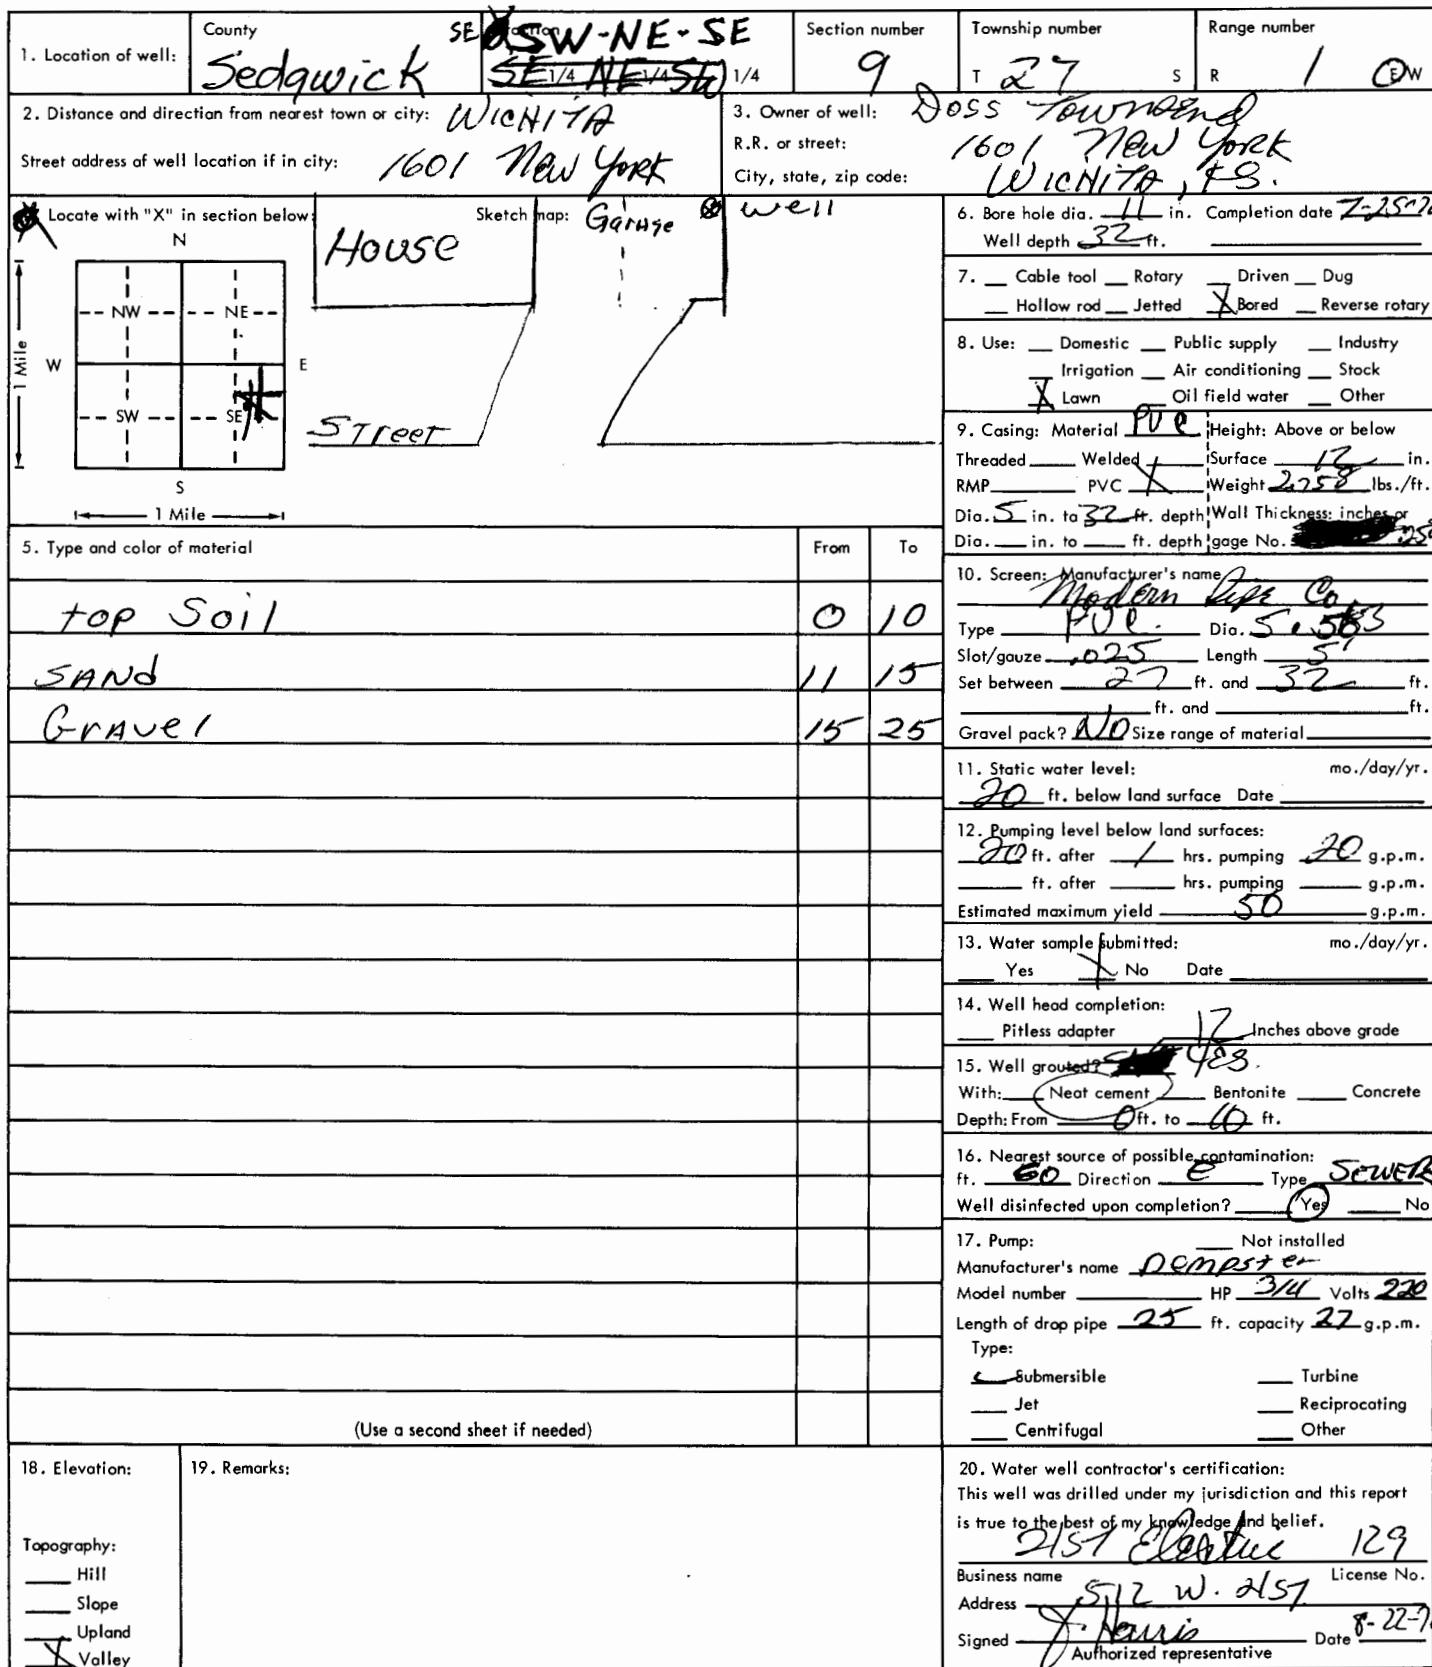 1. Location of well:
County
Sedgwick
SE SW-NE-SE
SE 1/4 NE 1/4 SW 1/4
Section number
9
Township number
T 27 S
Range number
R 1 E W
2. Distance and direction from nearest town or city: WICHITA
Street address of well location if in city: 1601 New York
3. Owner of well: Doss Townsend
R.R. or street: 1601 New York
City, state, zip code: WICHITA, KS.
Locate with "X" in section below:
N
NW NE
W E
SW SE
S
1 Mile
1 Mile
Sketch map:
House
Garage
well
Street
5. Type and color of material From To
top Soil 0 10
SAND 11 15
Gravel 15 25
(Use a second sheet if needed)
6. Bore hole dia. 11 in. Completion date 7-25-7
Well depth 32 ft.
7. Cable tool Rotary Driven Dug
Hollow rod Jetted X Bored Reverse rotary
8. Use: Domestic Public supply Industry
Irrigation Air conditioning Stock
X Lawn Oil field water Other
9. Casing: Material PVC Height: Above or below
Threaded Welded Surface 12 in.
RMP PVC X Weight 2.758 lbs./ft.
Dia. 5 in. to 32 ft. depth Wall Thickness: inches or
Dia. in. to ft. depth gage No. .25
10. Screen: Manufacturer's name
Modern Pipe Co.
Type PVC. Dia. 5.563
Slot/gauze .025 Length 5'
Set between 27 ft. and 32 ft.
ft. and ft.
Gravel pack? NO Size range of material
11. Static water level: mo./day/yr.
20 ft. below land surface Date
12. Pumping level below land surfaces:
20 ft. after 1 hrs. pumping 20 g.p.m.
ft. after hrs. pumping g.p.m.
Estimated maximum yield 50 g.p.m.
13. Water sample submitted: mo./day/yr.
Yes X No Date
14. Well head completion:
Pitless adapter 12 Inches above grade
15. Well grouted? YES.
With: Neat cement Bentonite Concrete
Depth: From 0 ft. to 10 ft.
16. Nearest source of possible contamination:
ft. 60 Direction E Type SEWER
Well disinfected upon completion? Yes No
17. Pump: Not installed
Manufacturer's name Dempster
Model number HP 3/4 Volts 220
Length of drop pipe 25 ft. capacity 27 g.p.m.
Type:
Submersible Turbine
Jet Reciprocating
Centrifugal Other
18. Elevation:
Topography:
Hill
Slope
Upland
X Valley
19. Remarks:
20. Water well contractor's certification:
This well was drilled under my jurisdiction and this report
is true to the best of my knowledge and belief.
21ST Electric 129
Business name License No.
Address 512 W. 21ST
Signed J. Harris Date 8-22-7
Authorized representative